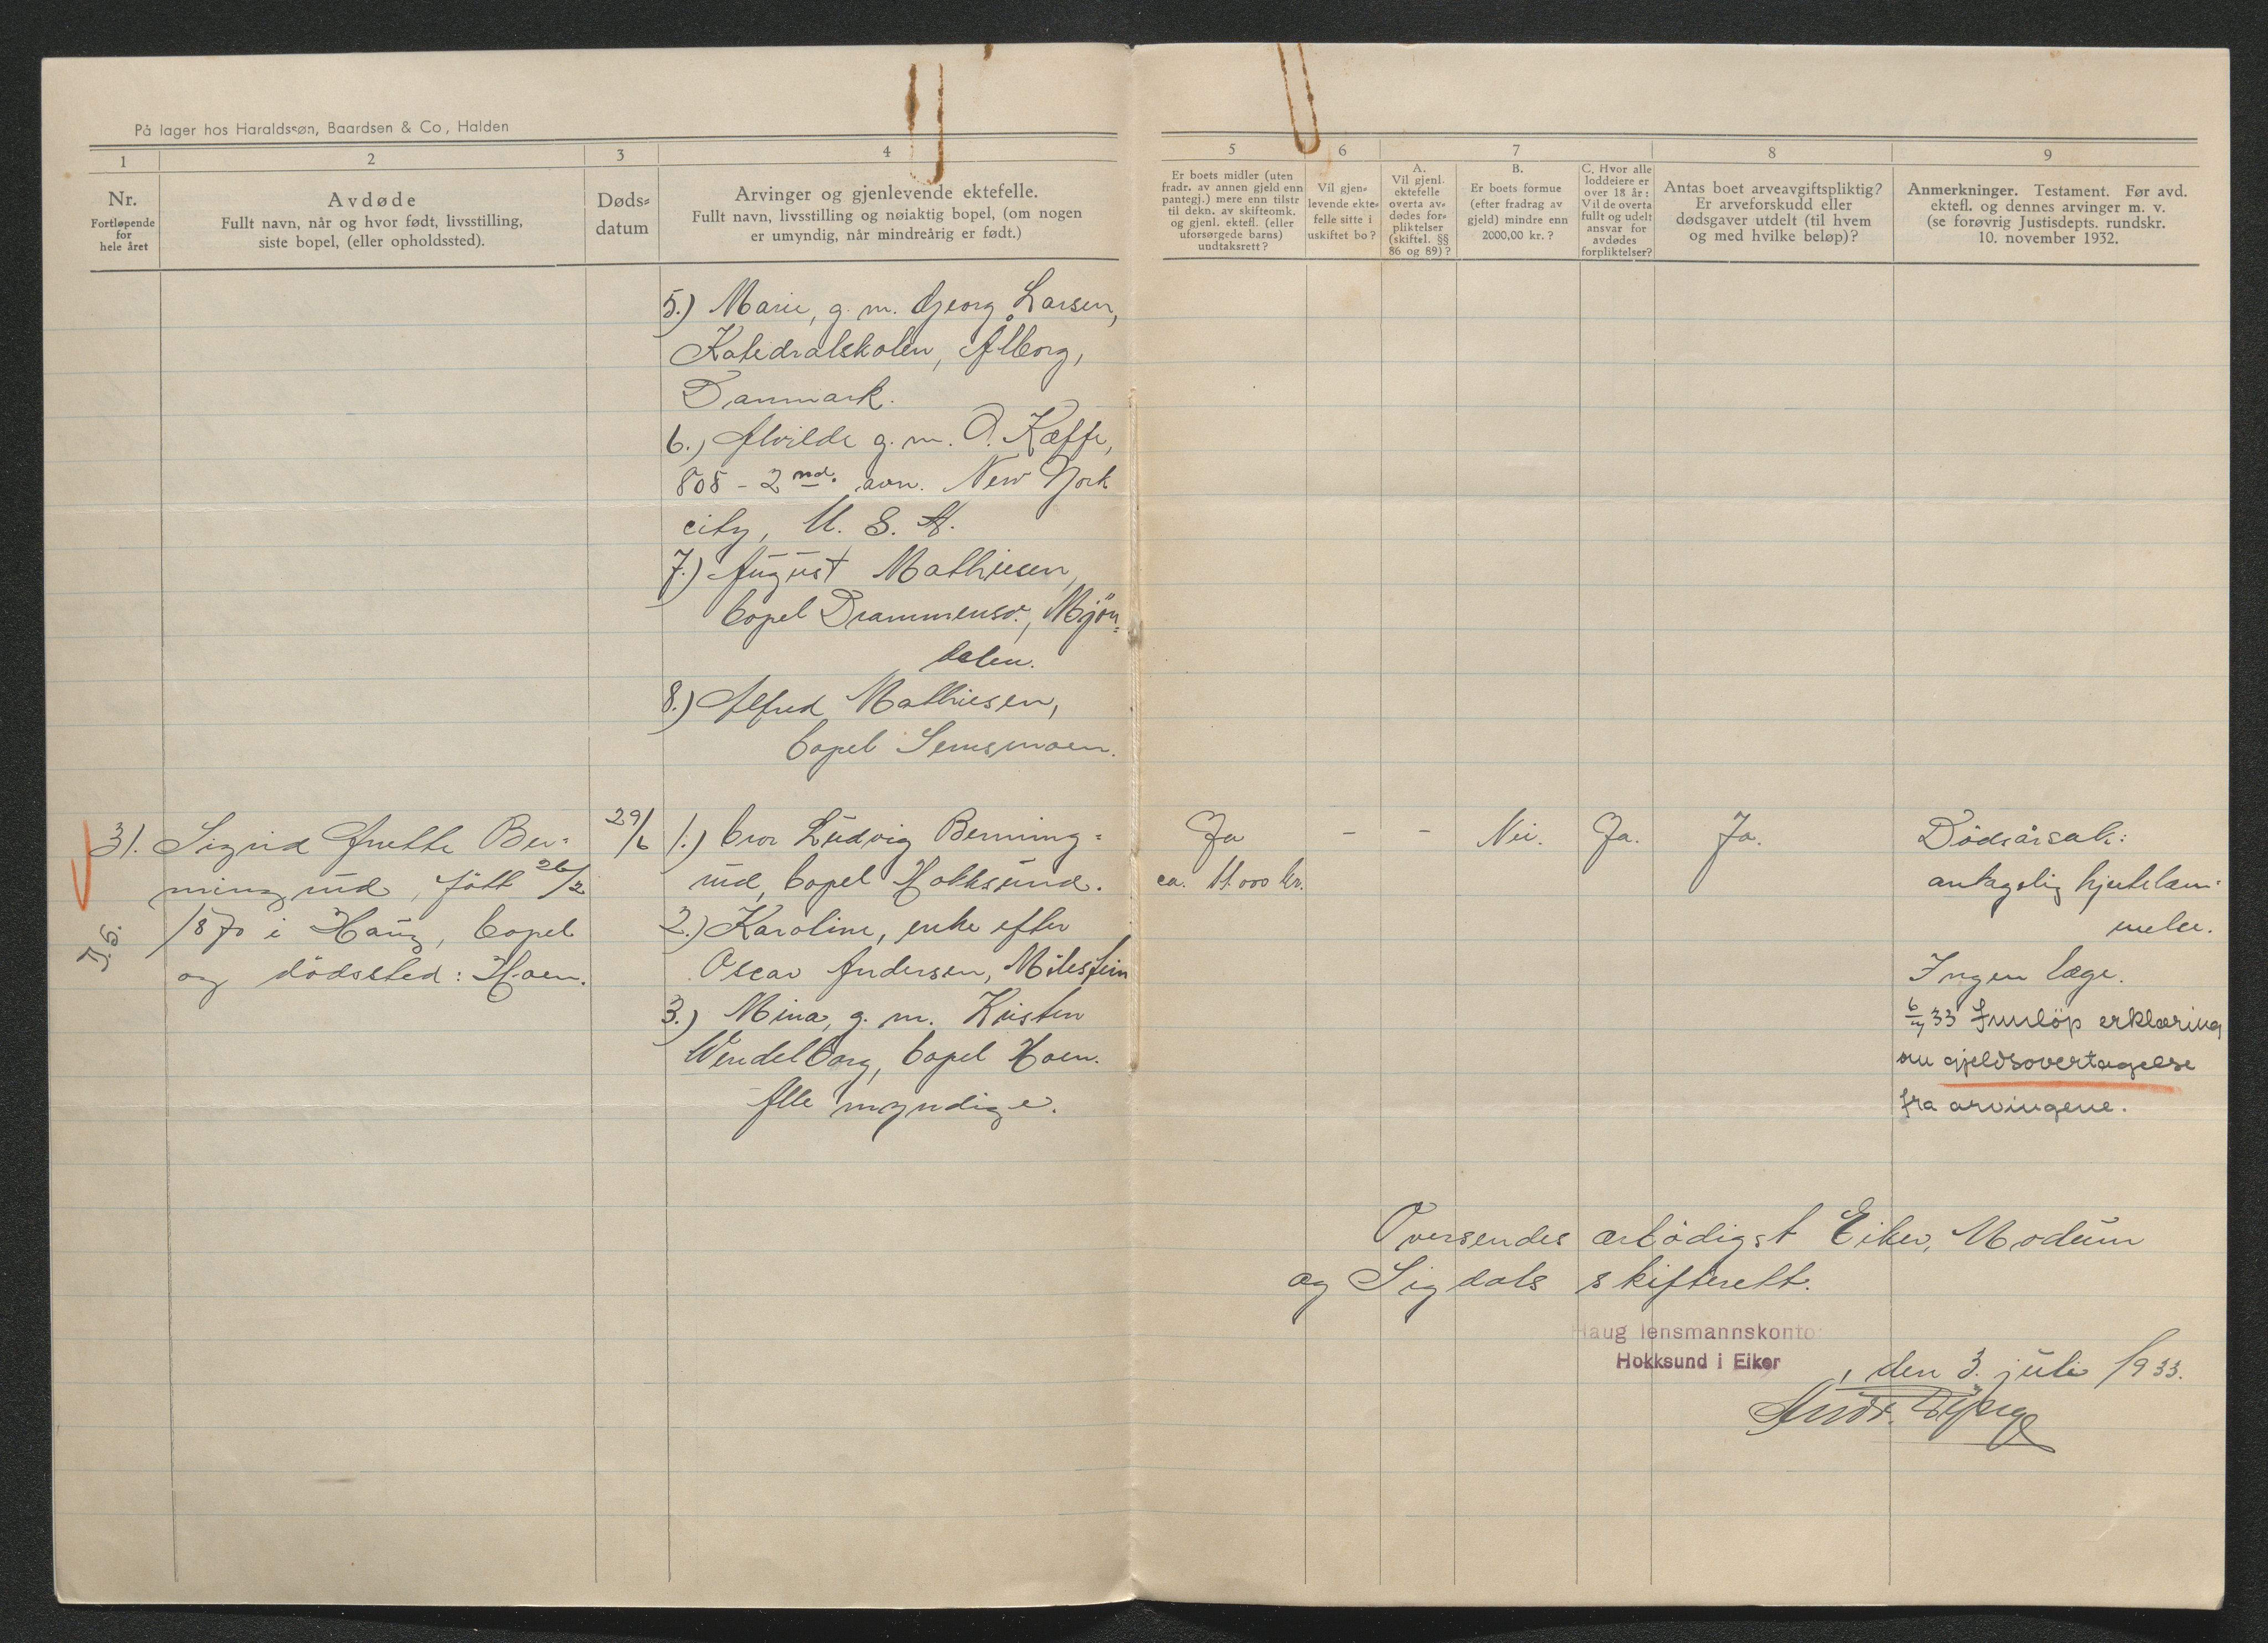 På lager hos Haraldssøn, Baardsen & Co, Halden
1
2
3
4
Nr.
Fortløpende
for
hele året
Avdøde
Fullt navn, når og hvor født, livsstilling,
siste bopel, (eller opholdssted).
Døds-
datum
Arvinger og gjenlevende ektefelle.
Fullt navn, livsstilling og nøiaktig bopel, (om nogen
er umyndig, når mindreårig er født.)
5
6
7
8
9
Er boets midler (uten
fradr. av annen gjeld enn
pantegj.) mere enn tilstr
til dekn. av skifteomk.
og gjenl. ektefl. (eller
uforsørgede barns)
undtaksrett?
Vil gjen-
levende ekte-
felle sitte i
uskiftet bo?
A.
Vil gjenl.
ektefelle
overta av-
dødes for-
pliktelser
(skiftel. §§
86 og 89)?
B.
Er boets formue
(efter fradrag av
gjeld) mindre enn
2000,00 kr.?
C. Hvor alle
loddeiere er
over 18 år:
Vil de overta
fullt og udelt
ansvar for
avdødes
forpliktelser?
Antas boet arveavgiftspliktig?
Er arveforskudd eller
dødsgaver utdelt (til hvem
og med hvilke beløp)?
Anmerkninger. Testament. Før avd.
ektefl. og dennes arvinger m. v.
(se forøvrig Justisdepts. rundskr.
10. november 1932.
5.) Marie, g. m. Georg Larsen,
Katedralskolen, Ålborg,
Danmark.
6.) Alvilde g. m. O. Kæffe,
808 - 2nd. avn. New York
city, U. S. A.
7.) August Mathiesen,
bopel Drammensv., Mjön-
dalen.
8.) Alfred Mathiesen,
bopel Semsmoen.
31. Sigrid Anette Ber-
mingrud, fött 26/2
1870 i Haug, bopel
og dödssted: Hoen.
J.S.
29/6
1.) bror Ludvig Berming-
rud, bopel Hokksund.
2.) Karoline, enke efter
Oscar Andersen, Milestein
3.) Mina, g. m. Kristen
Wendelborg, bopel Hoen.
Alle myndige.
Ja
ca. 11.000 kr.
-
-
Nei.
Ja.
Ja.
Dödsårsak:
antagelig hjertelam-
melse.
Ingen læge.
6/7 33 Innlöp erklæring
om gjeldsovertagelse
fra arvingene.
Oversendes ærbödigst Eiker, Modum
og Sigdals skifterett.
Haug lensmannskontor
Hokksund i Eiker
, den 3. juli 1933.